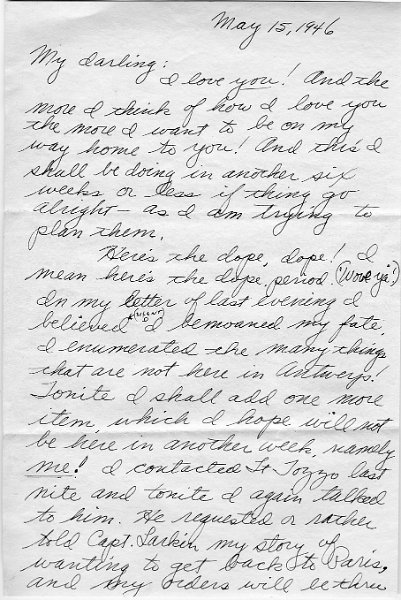 May 15, 1946
My darling:
I love you! And the
more I think of how I love you
the more I want to be on my
way home to you! And this I
shall be doing in another six
weeks or less if thing go
alright — as I am trying to
plan them.
Here's the dope, dope! I
mean here's the dope, period. (I love ya!)
In my letter of last evening I
believed I bemoaned my fate.
I enumerated the many things
that are not here in Antwerp!
Tonite I shall add one more
item, which I hope will not
be here in another week, namely
me! I contacted Lt. Tozzo last
nite and tonite I again talked
to him. He requested or rather
told Capt. Larkin my story of
wanting to get back to Paris,
and my orders will be thru